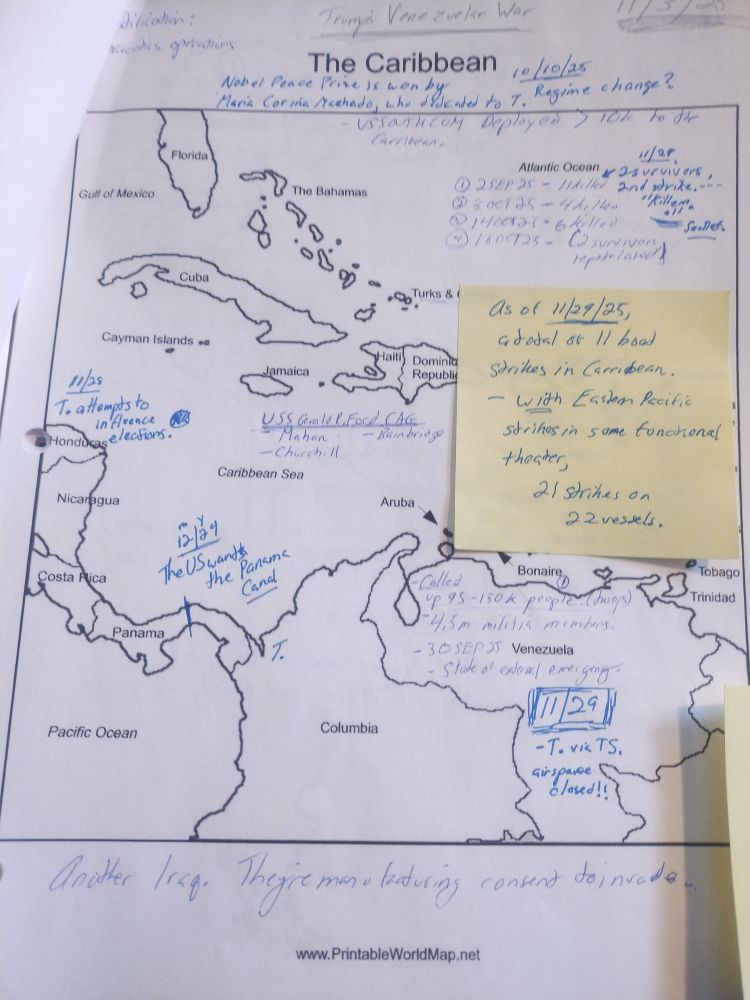 Trump's Venezuelan War
operations
The Caribbean
10/10/25
Nobel Peace Prize is won by
Regime change?
María Corina Machado, who dedicated to T.
- USSOUTHCOM Deployed > 10k to the
Carribean.
Florida
Gulf of Mexico
The Bahamas
Atlantic Ocean
11/28
2 survivors,
2nd strike.---
"Kill em
all"
① 2SEP25 - 11 killed
② 3OCT25 - 4 killed
③ 14OCT25 - 6 killed
④ 16OCT25 - (2 survivors
repatriated)
Cuba
Turks &
Cayman Islands
Haiti
Dominic
Republic
Jamaica
As of 11/29/25,
a total of 11 boat
strikes in Carribean.
- with Eastern Pacific
strikes in same functional
theater,
21 strikes on
22 vessels.
11/28
T. attempts to
influence
elections.
Honduras
USS Gerald R. Ford CAG
- Mahan
- Bainbridge
- Churchill
Caribbean Sea
Nicaragua
Aruba
12/24
The US wants
the Panama
Canal
Bonaire
Tobago
Trinidad
Costa Rica
Panama
T.
- Called
up 95-150k people. (troops)
- 4.5m militia members.
- 30SEP25
Venezuela
- State of external emergency.
11/29
- T. via TS.
airspace
closed!!
Pacific Ocean
Columbia
Another Iraq. They're manufacturing consent to invade..
www.PrintableWorldMap.net